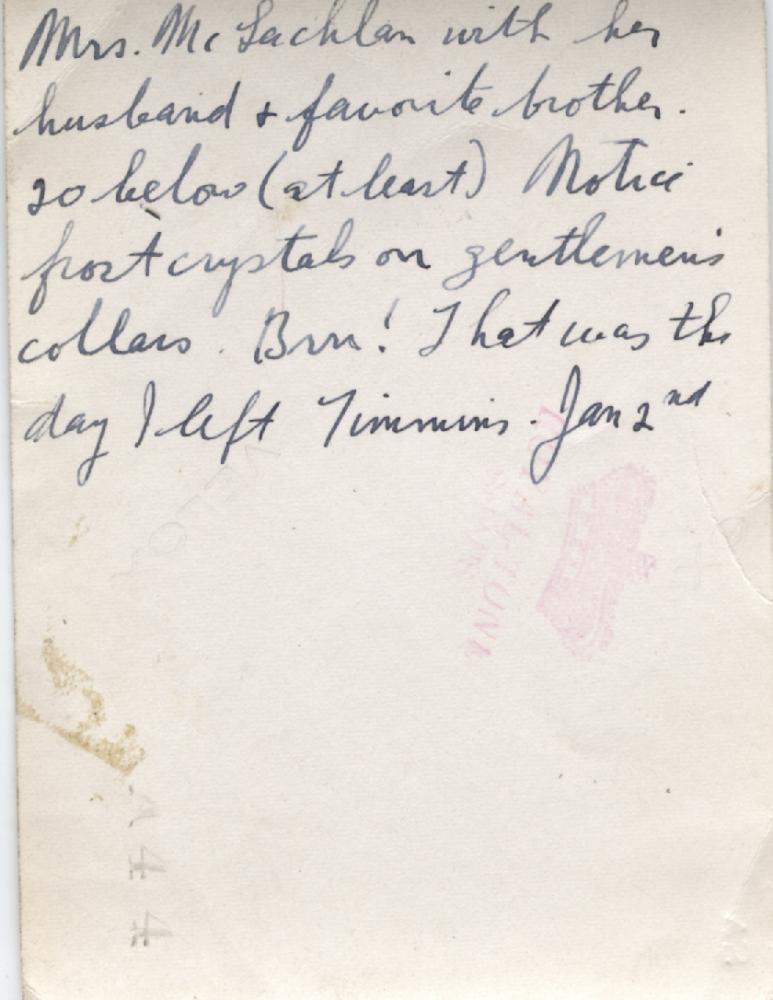 Mrs. McLachlan with her
husband & favorite brother.
20 below (at least) Notice
frost crystals on gentlemen's
collars. Brrr! That was the
day I left Timmins. Jan 2nd
VELOX